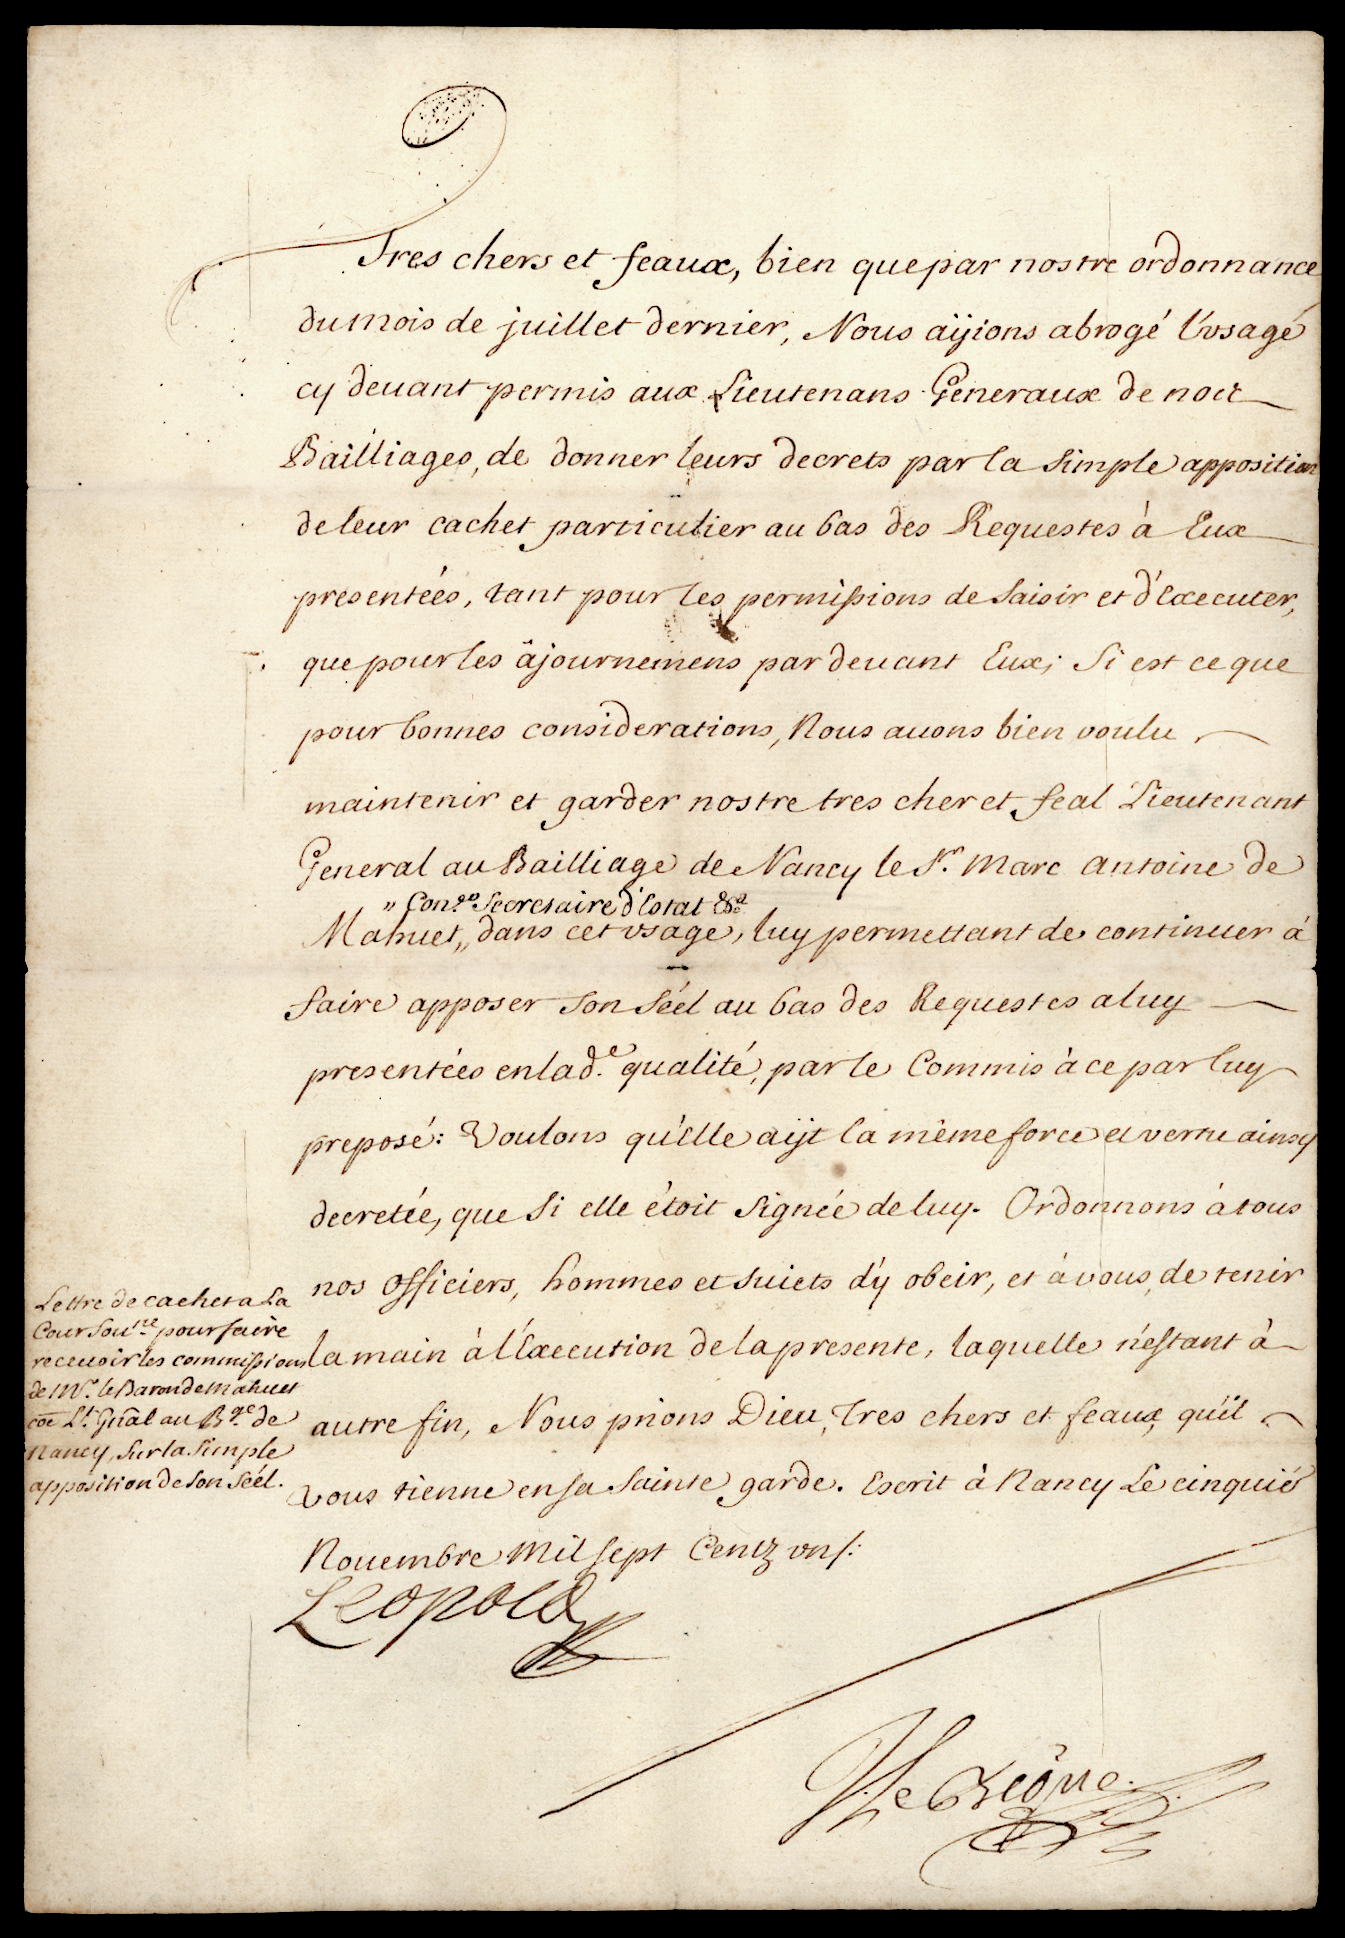 Tres chers et feaux, bien que par nostre ordonnance
du mois de juillet dernier, Nous aÿions abrogé l'vsagé
cy deuant permis aux Lieutenans Generaux de noz
Bailliages, de donner leurs decrets par la simple apposition
de leur cachet particulier au bas des Requestes à Eux
presentées, tant pour les permissions de saisir et d'Executer,
que pour les âjournemens par deuant Eux; Si est ce que
pour bonnes considerations, Nous auons bien voulu
maintenir et garder nostre tres cher et feal Lieutenant
General au Bailliage de Nancy le Sr. Marc Antoine de
" Con.er Secretaire d'Estat &a
Mahuet,, dans cet vsage, luy permettant de continuer à
faire apposer son séél au bas des Requestes a luy
presentées en lad.e qualité, par le Commis à ce par luy
preposé: Voulons qu'Elle aÿt la même force et vertu ainsy
decretée, que si elle étoit signée de luy. Ordonnons à tous
nos officiers, hommes et suiets d'y obeir, et à vous, de tenir
la main à l'Execution de la presente, laquelle n'estant à
autre fin, Nous prions Dieu, Tres chers et feaux, qu'il
vous tienne en sa sainte garde. Escrit à Nancy Le cinquié
Nouembre mil sept Centz vnf:
Leopold
Lettre de cachet a La
Cour Souu.ne pour faire
receuoir les commissions
de Mr. le Baron de Mahuet
coe Lt. Gñal au B.ge de
Nancy, sur la simple
apposition de son séél.